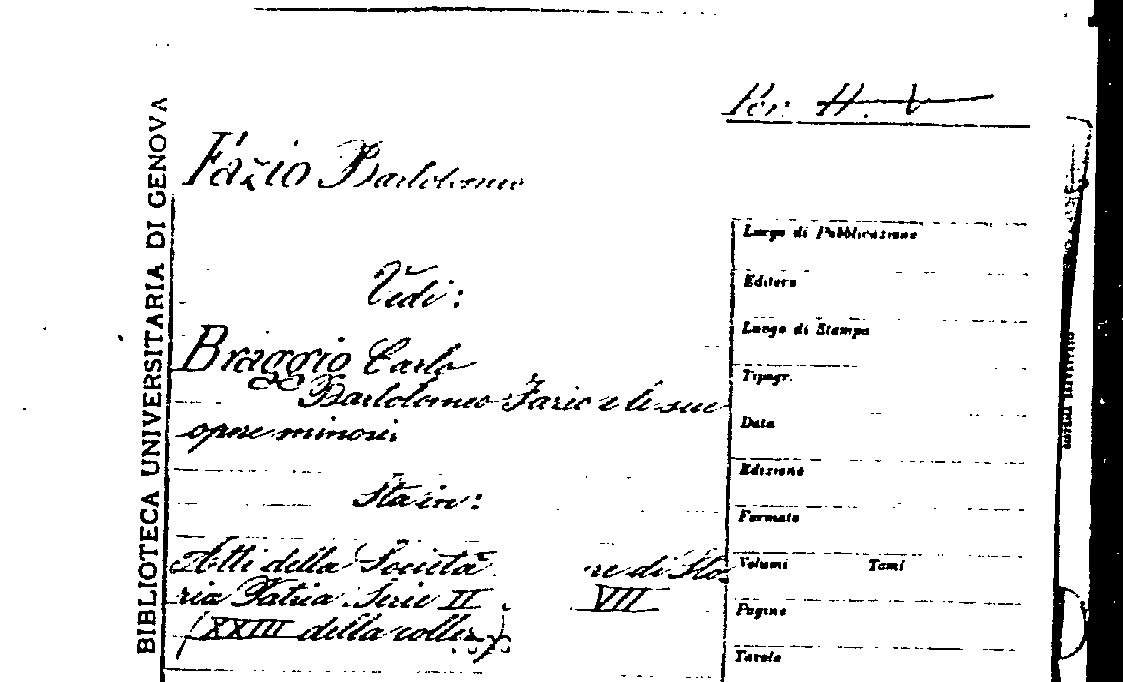 Per. H.
Fazio Bartolomeo
Vedi:
Braggio Carlo
Bartolomeo Fazio e le sue
opere minori
Sta in:
Atti della Società re di Sto
ria Patria. Serie II VII
(XXIII della collez.)
BIBLIOTECA UNIVERSITARIA DI GENOVA
Luogo di Pubblicazione
Editore
Luogo di Stampa
Tipogr.
Data
Edizione
Formato
Volumi Tomi
Pagine
Tavole